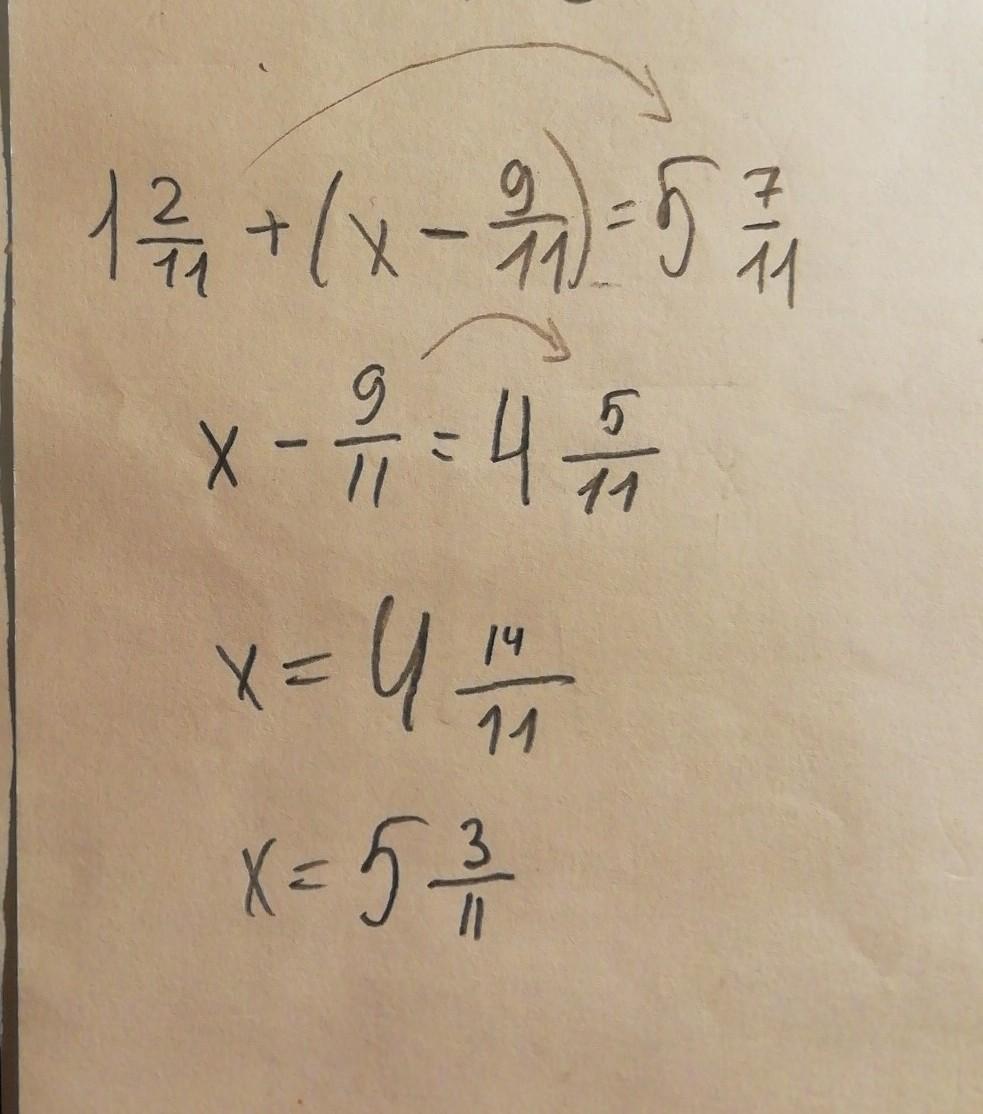 1 2/11 + (x - 9/11) = 5 7/11
x - 9/11 = 4 5/11
x = 4 14/11
x = 5 3/11